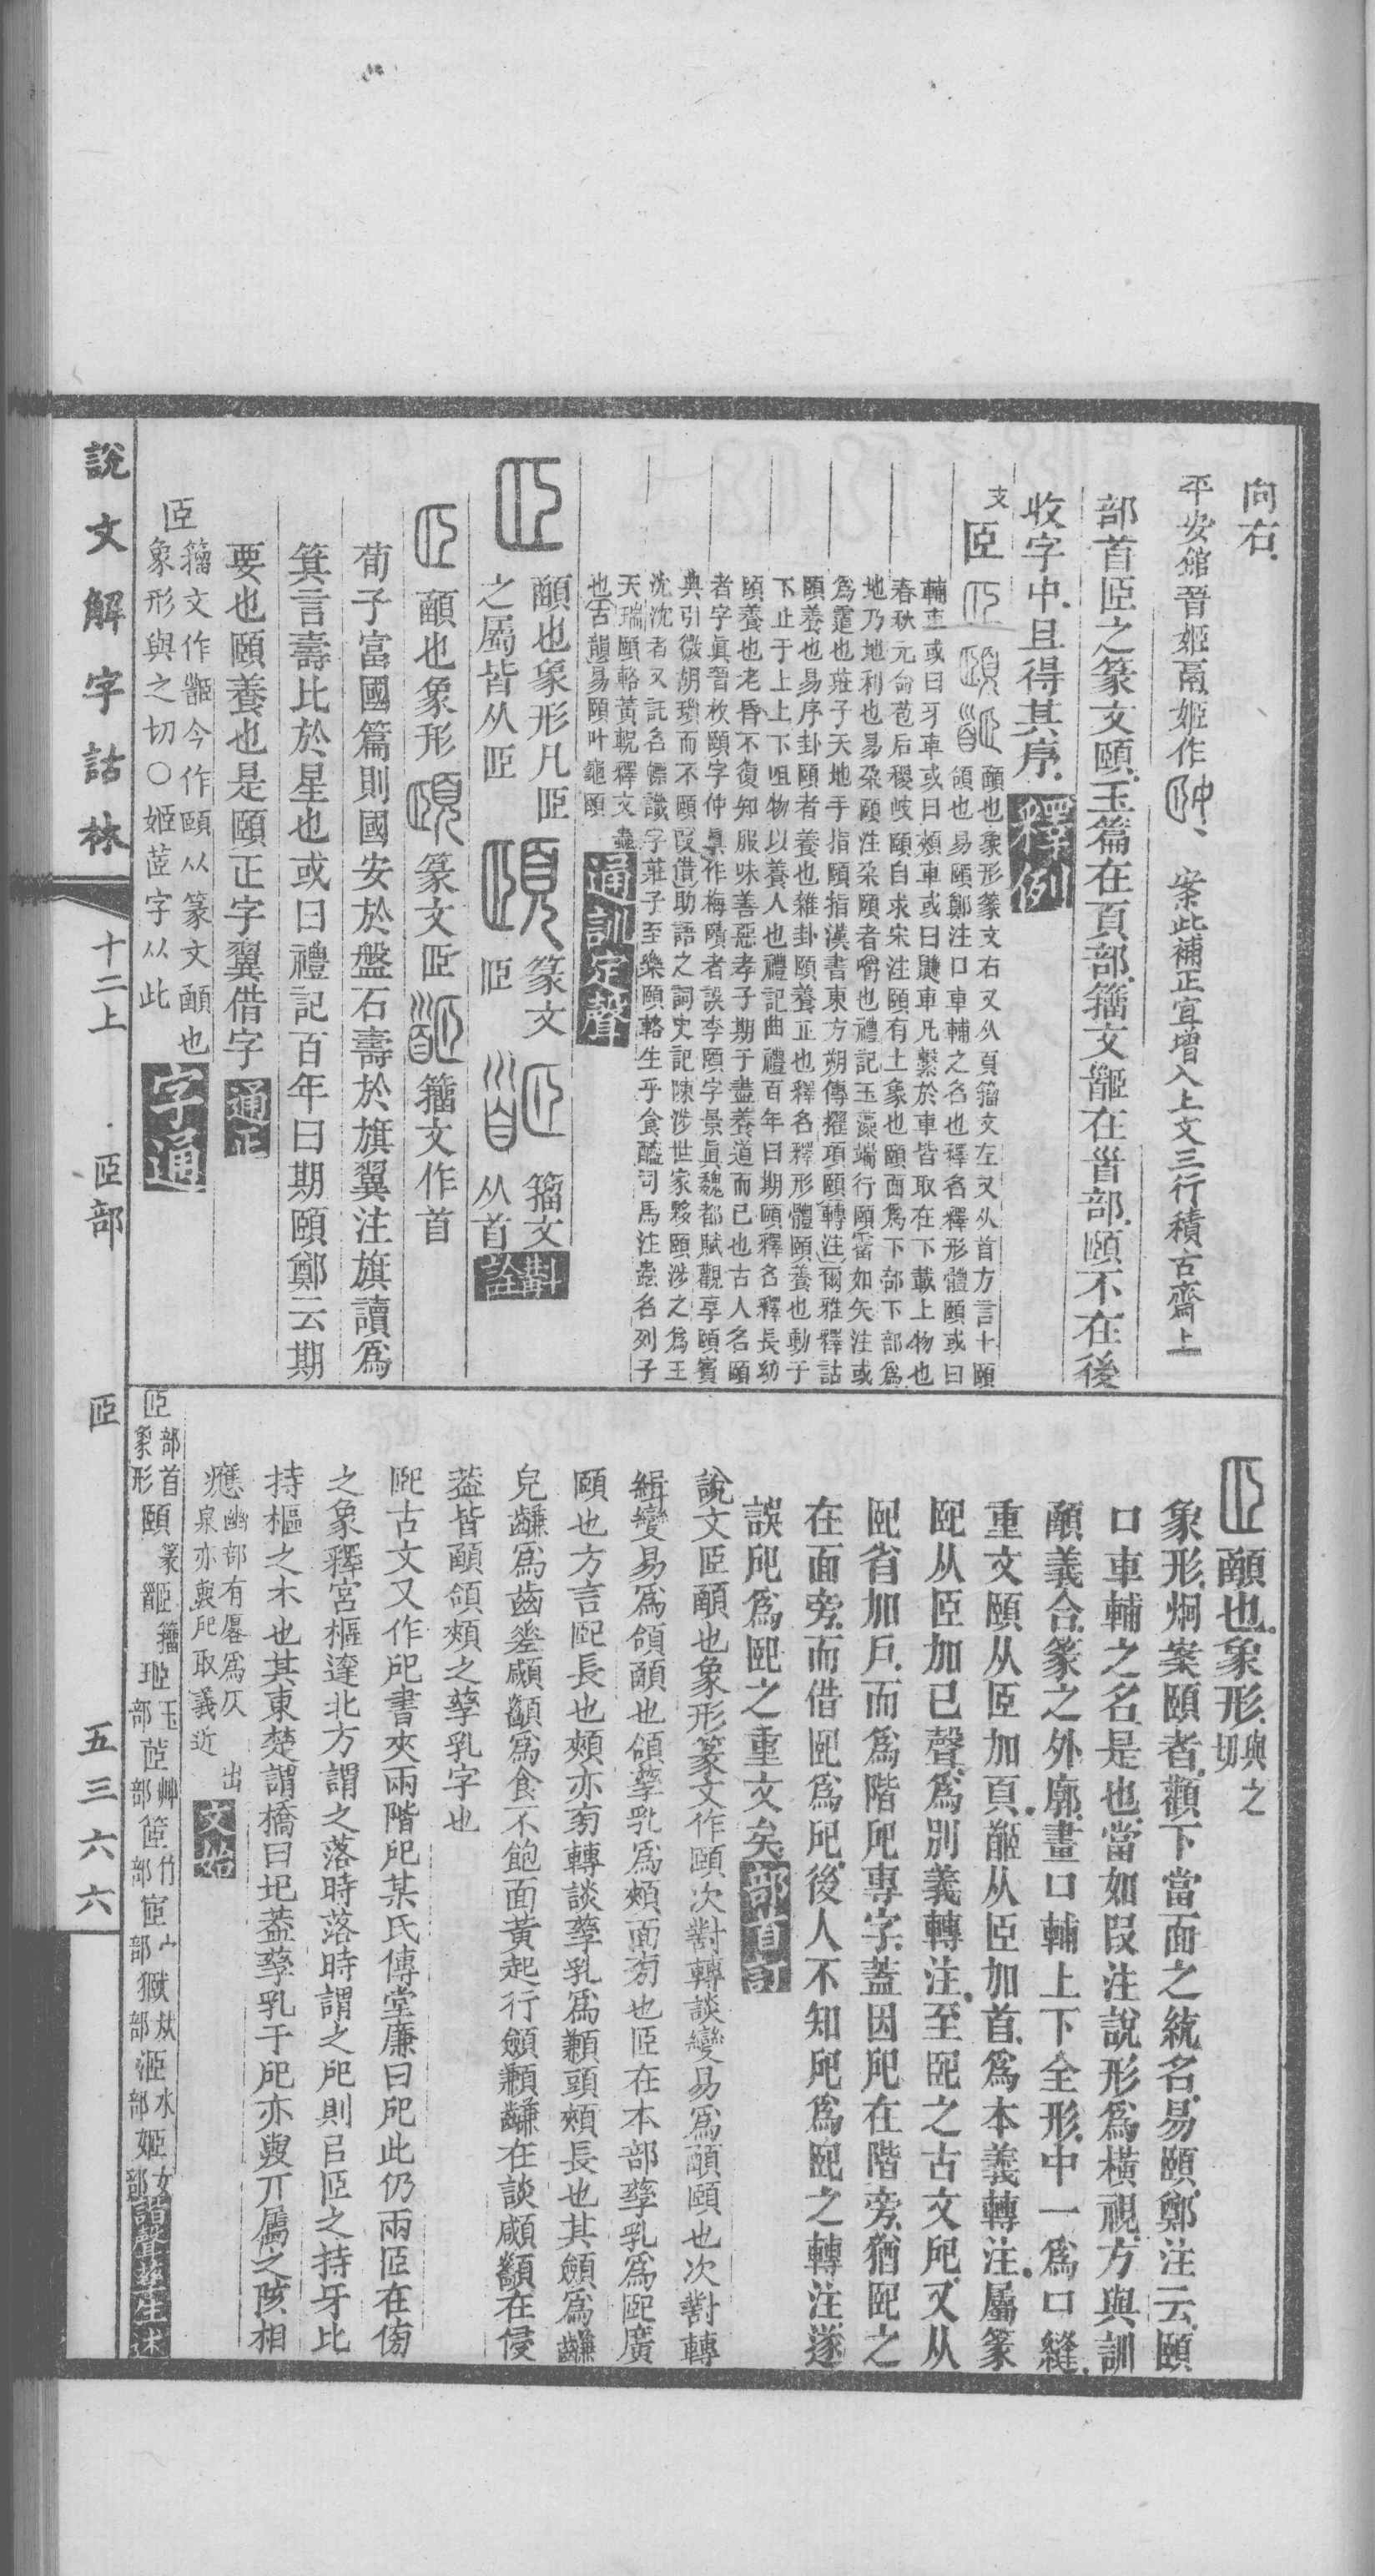 向右
平安館晉姬鬲姬作 案此補正宜增入上文三行積古齋上
部首𦣞之篆文頤玉篇在頁部籀文𩠡在𩠐部頤不在後
收字中且得其序 釋例
支𦣞 顄也象形篆文右又从頁籀文左又从首方言十頤
頜也易頤鄭注口車輔之名也釋名釋形體頤或曰
輔車或曰牙車或曰頰車或曰鼸車凡繫於車皆取在下載上物也
春秋元命苞后稷岐頤自求宋注頤有土象也頤面爲下部下部爲
地乃地利也易朵頤注朵頤者嚼也禮記玉藻端行頤霤如矢注或
爲霆也莊子天地手指頤指漢書東方朔傳擢項頤轉注爾雅釋詁
頤養也易序卦頤者養也雜卦頤養正也釋名釋形體頤養也動于
下止于上上下咀物以養人也禮記曲禮百年曰期頤釋名釋長幼
頤養也老昏不復知服味善惡孝子期于盡養道而已也古人名頤
者字真晉枚頤字仲真作梅賾者誤李頤字景真魏都賦觀享頤賓
典引微胡瑣而不頤叚借助語之詞史記陳涉世家夥頤涉之爲王
沈沈者又託名幖識字莊子至樂頤輅生乎食醯司馬注蟲名列子
天瑞頤輅黃軦釋文蟲
也古韻易頤叶龜頤 通訓定聲
顄也象形凡𦣞之屬皆从𦣞 篆文𦣞 籀文从首 斠詮
顄也象形 篆文𦣞 籀文作首
荀子富國篇則國安於盤石壽於旗翼注旗讀爲
箕言壽比於星也或曰禮記百年曰期頤鄭云期
要也頤養也是頤正字翼借字 通正
𦣞籀文作𩠡今作頤从篆文顄也
象形與之切〇姬茝字从此 字通
顄也象形與之切
象形炯案頤者顴下當面之統名易頤鄭注云頤
口車輔之名是也當如段注說形爲橫視方與訓
顄義合篆之外廓畫口輔上下全形中一爲口縫
重文頤从𦣞加頁𩠡从𦣞加首爲本義轉注屬篆
巸从𦣞加已聲爲別義轉注至巸之古文戺又从
巸省加戶而爲階戺專字蓋因戺在階旁猶巸之
在面旁而借巸爲戺後人不知戺爲巸之轉注遂
誤戺爲巸之重文矣 部首訂
說文𦣞顄也象形篆文作頤次對轉談變易爲顄頤也次對轉
緝變易爲頜顄也頜孳乳爲頰面旁也𦣞在本部孳乳爲巸廣
頤也方言巸長也頰亦旁轉談孳乳爲䫡頭頰長也其顩爲鹻
皃齸爲齒差顑顲爲食不飽面黃起行顩䫡在談顑顲在侵
葢皆顄頜頰之孳乳字也
巸古文又作戺書夾兩階戺某氏傳堂廉曰戺此仍兩𦣞在傍
之象釋宮樞達北方謂之落時落時謂之戺則㠯𦣞之持牙比
持樞之木也其東楚謂橋曰圯葢孳乳于戺亦與丌屬之陔相
應幽部有㕑爲仄出
泉亦與戺取義近 文始
𦣞部首象形頤篆𩠡籀珆玉部茝艸部䇫竹部宧宀部㹷㹜部洍水部姬女部 諧聲孳生述
說文解字詁林 十二上 𦣞部 𦣞 五三六六